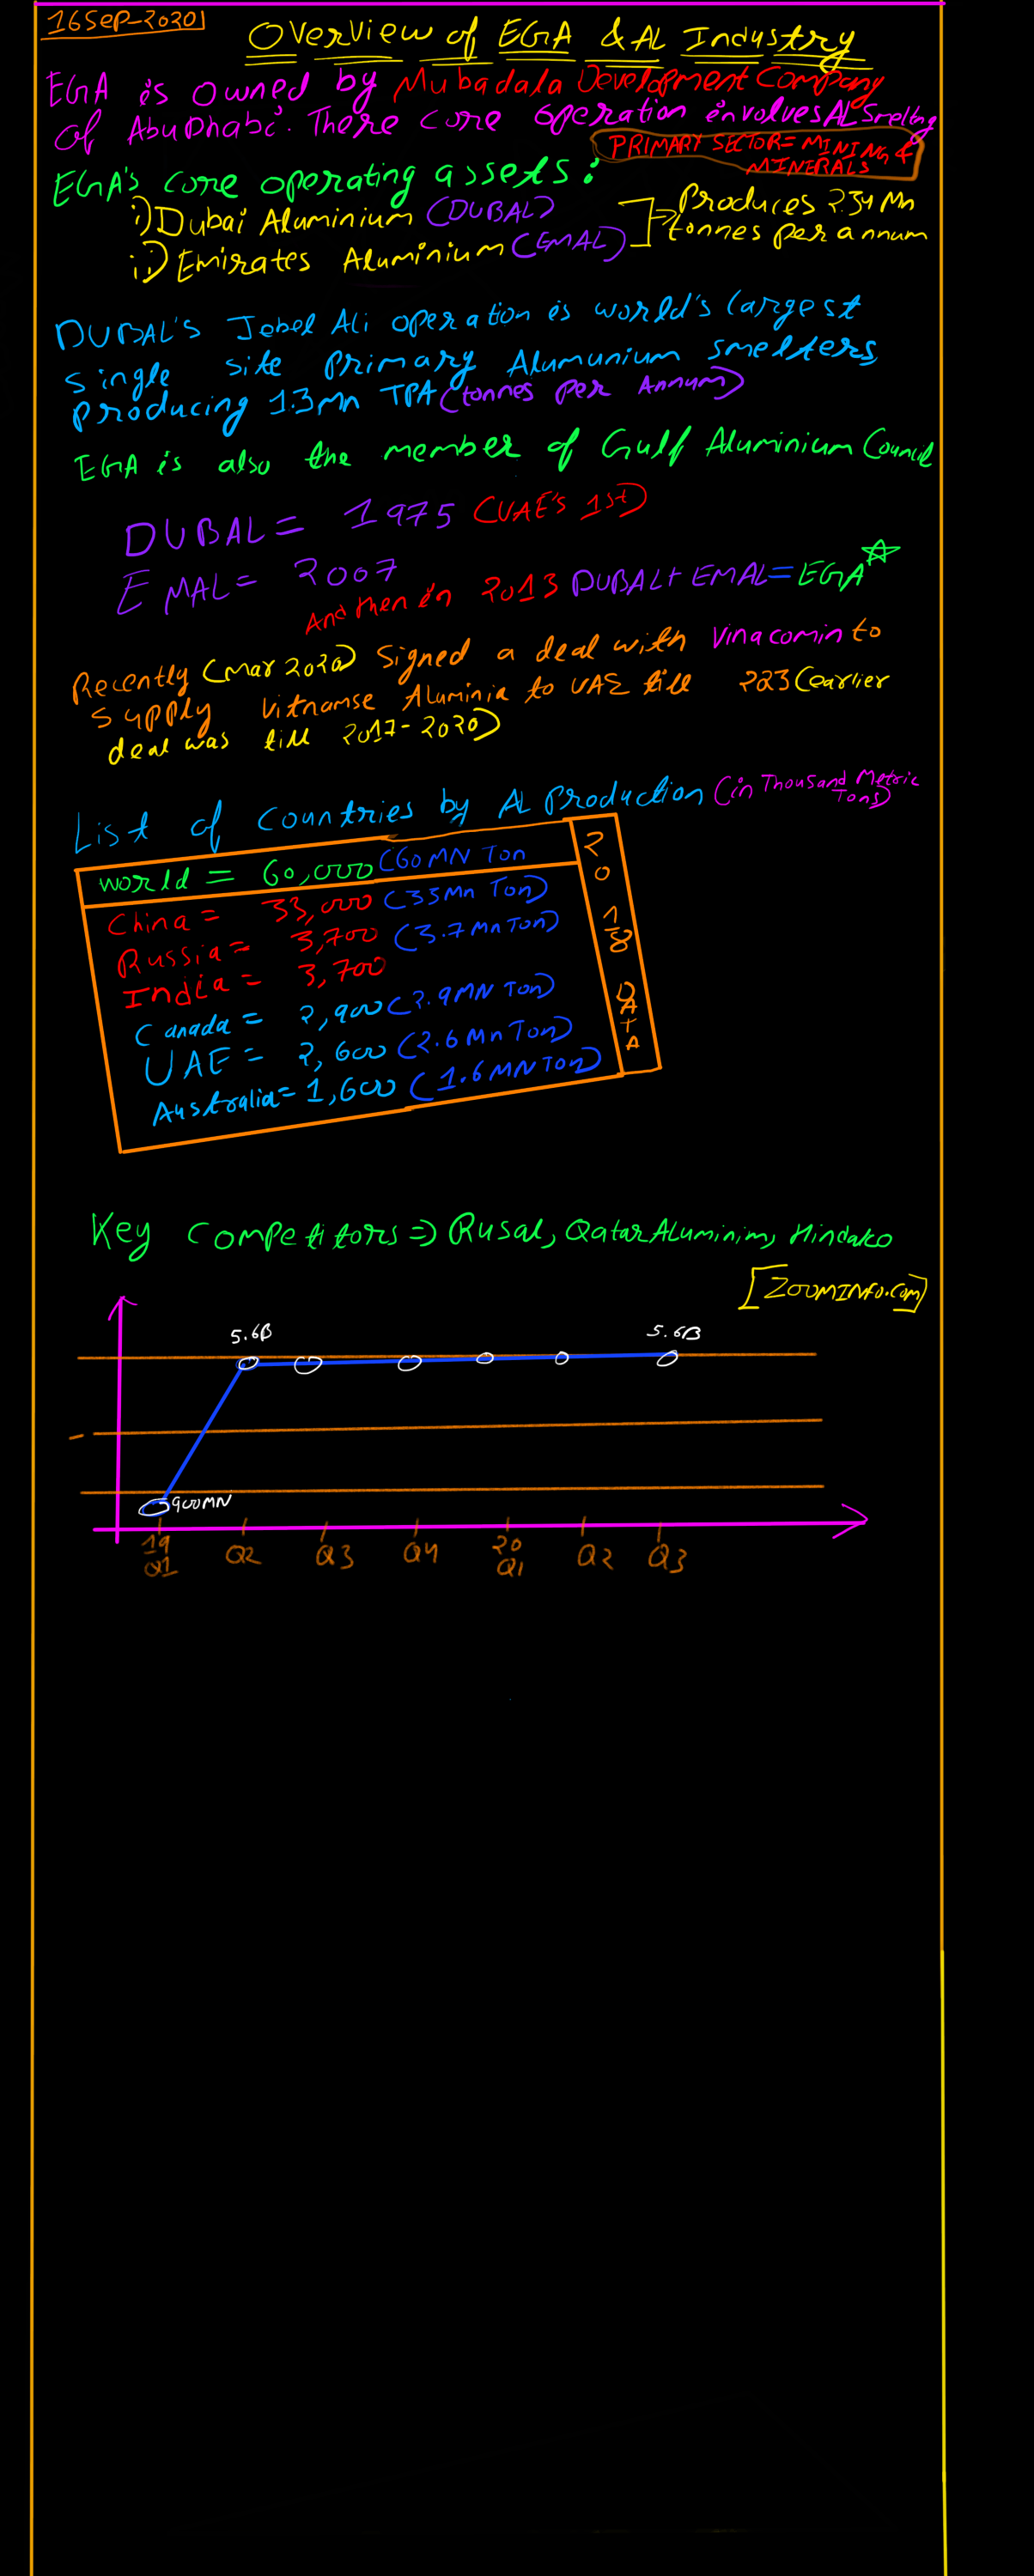 16Sep-2020
Overview of EGA & AL Industry
EGA is owned by Mubadala Development Company
of AbuDhabi. There core operation involves AL Smelting
PRIMARY SECTOR= MINING &
MINERALS
EGA's core operating assets:
i) Dubai Aluminium (DUBAL)
ii) Emirates Aluminium (EMAL)
⇒ Produces 2.34 Mn
tonnes per annum
DUBAL's Jebel Ali operation is world's largest
single site primary Alumunium smelters,
producing 1.3mn TPA (tonnes per Annum)
EGA is also the member of Gulf Aluminium Council
DUBAL = 1975 (UAE's 1st)
EMAL = 2007
And then in 2013 DUBAL+ EMAL = EGA
Recently (Mar 2020) Signed a deal with Vinacomin to
supply Vitnamse Aluminia to UAE till 223 (earlier
deal was till 2017-2020)
List of countries by AL Production (in Thousand Metric
Tons)
world = 60,000 (60 MN Ton
China = 33,000 (33Mn Ton)
Russia = 3,700 (3.7Mn Ton)
India = 3,700
Canada = 2,900 (2.9MN Ton)
UAE = 2,600 (2.6Mn Ton)
Australia = 1,600 (1.6 MN Ton)
2018 DATA
Key Competitors ⇒ Rusal, Qatar ALuminim, Hindalco
[ZOOMINFO.com]
5.6B 5.6B
900MN
19 20
Q1 Q2 Q3 Q4 Q1 Q2 Q3